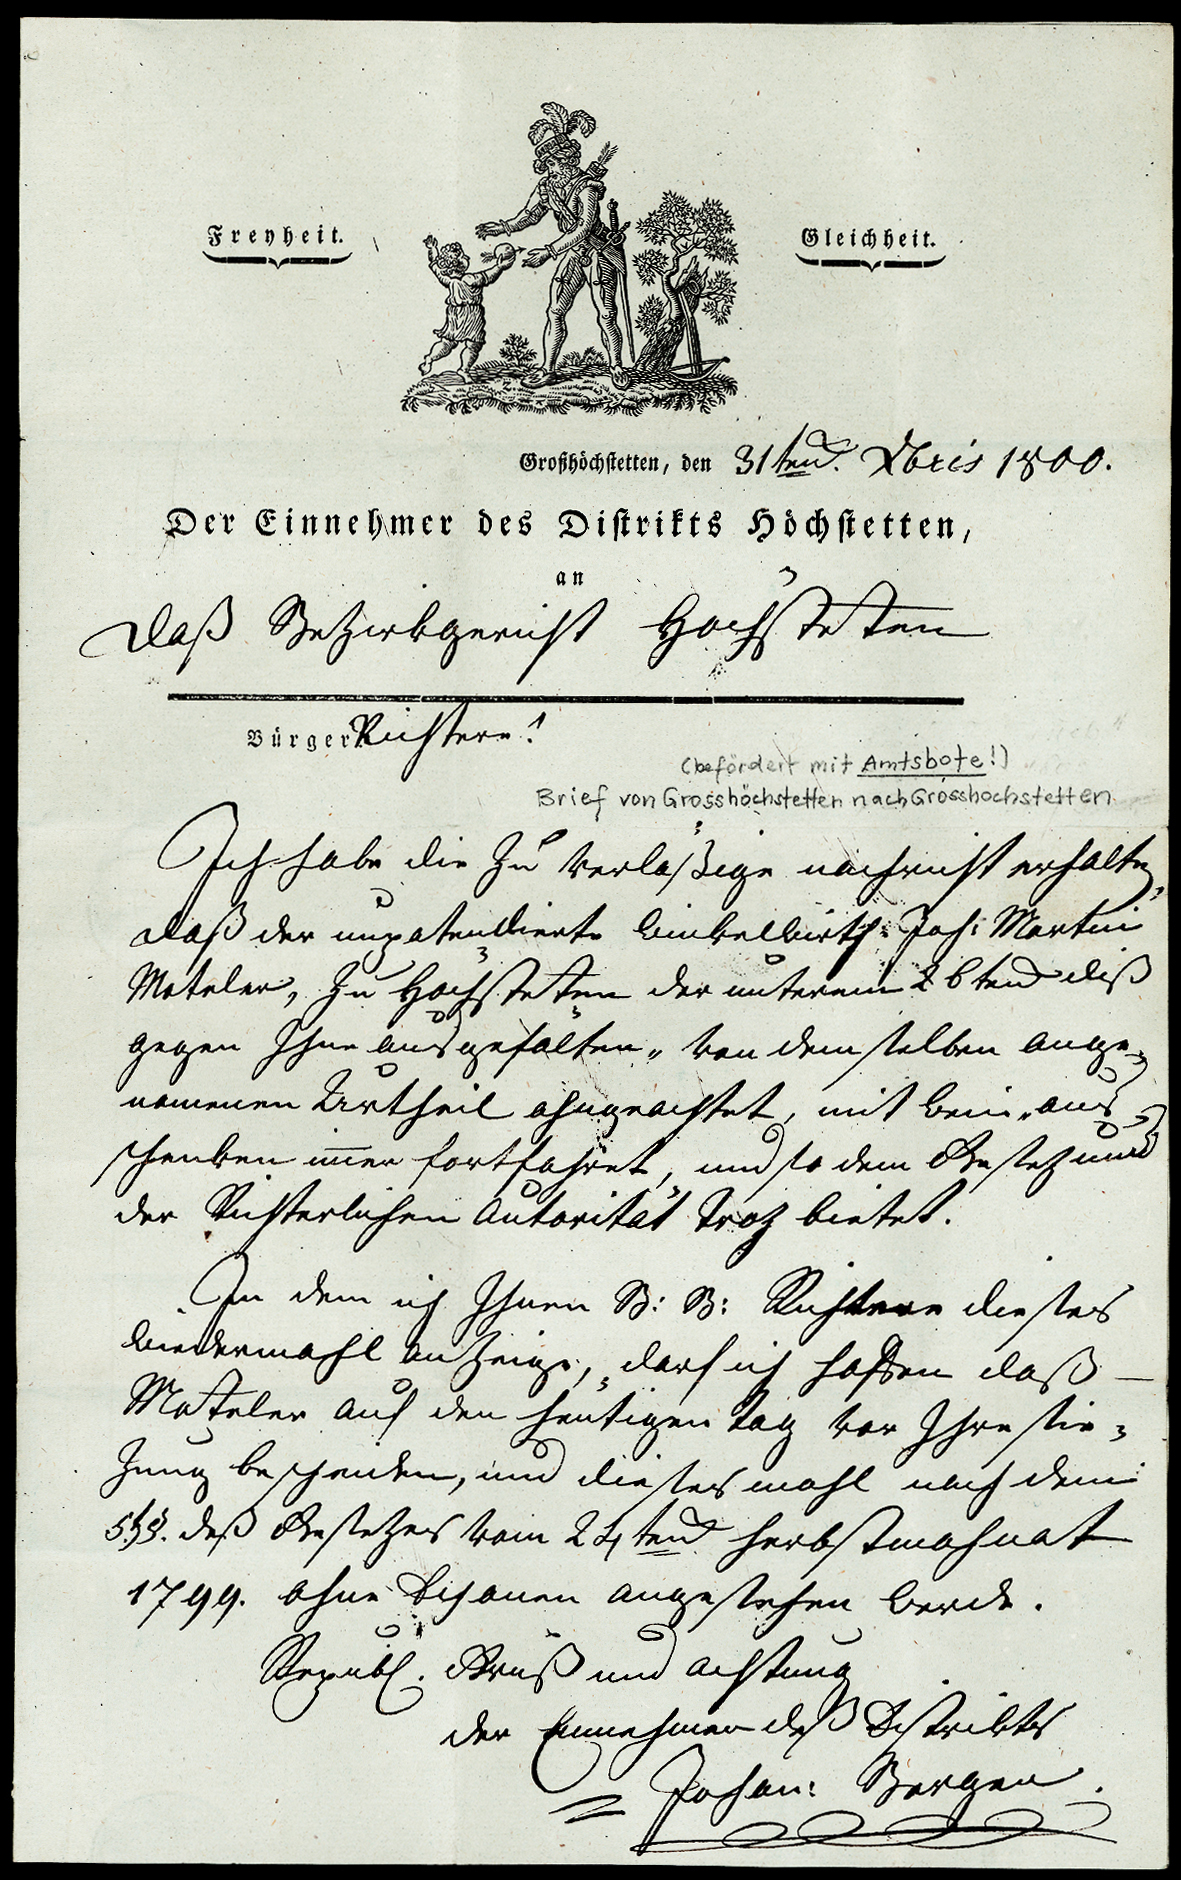 Freyheit.
Gleichheit.
Großhöchstetten, den 31ten. Xbris 1800.
Der Einnehmer des Distrikts Höchstetten,
an
Daß Bezirkgericht Höchstetten
Bürger Richtere!
(befördert mit Amtsbote!)
Brief von Grosshöchstetten nach Grosshöchstetten
Ich habe die zu verläßige nachricht erhalten,
daß der unpatendierte Winkelwirth: Joh: Martin
Moteler, zu Höchstetten der unterem 26ten diß
gegen Ihne ausgefälten, von demselben ange-
nomenen Urtheil ohngeachtet, mit Wein, aus-
schenken imer fortfahret, und so dem Gesetz und
der Richterlichen Autorität Troz bietet.
In dem ich Ihnen B: B: Richtere dieses
Wiedermahl anzeige, darf ich hoffen daß
Motteler auf den heütigen tag vor Ihre sie-
zung bescheiden, und dieses mahl nach dem
5t. §. deß Gesetzes vom 24ten Herbstmohnat
1799. ohne Schonen angesehen werde.
Republ. Gruß und achtung
der Einnehmer deß Distrikts
Johan: Bergen.